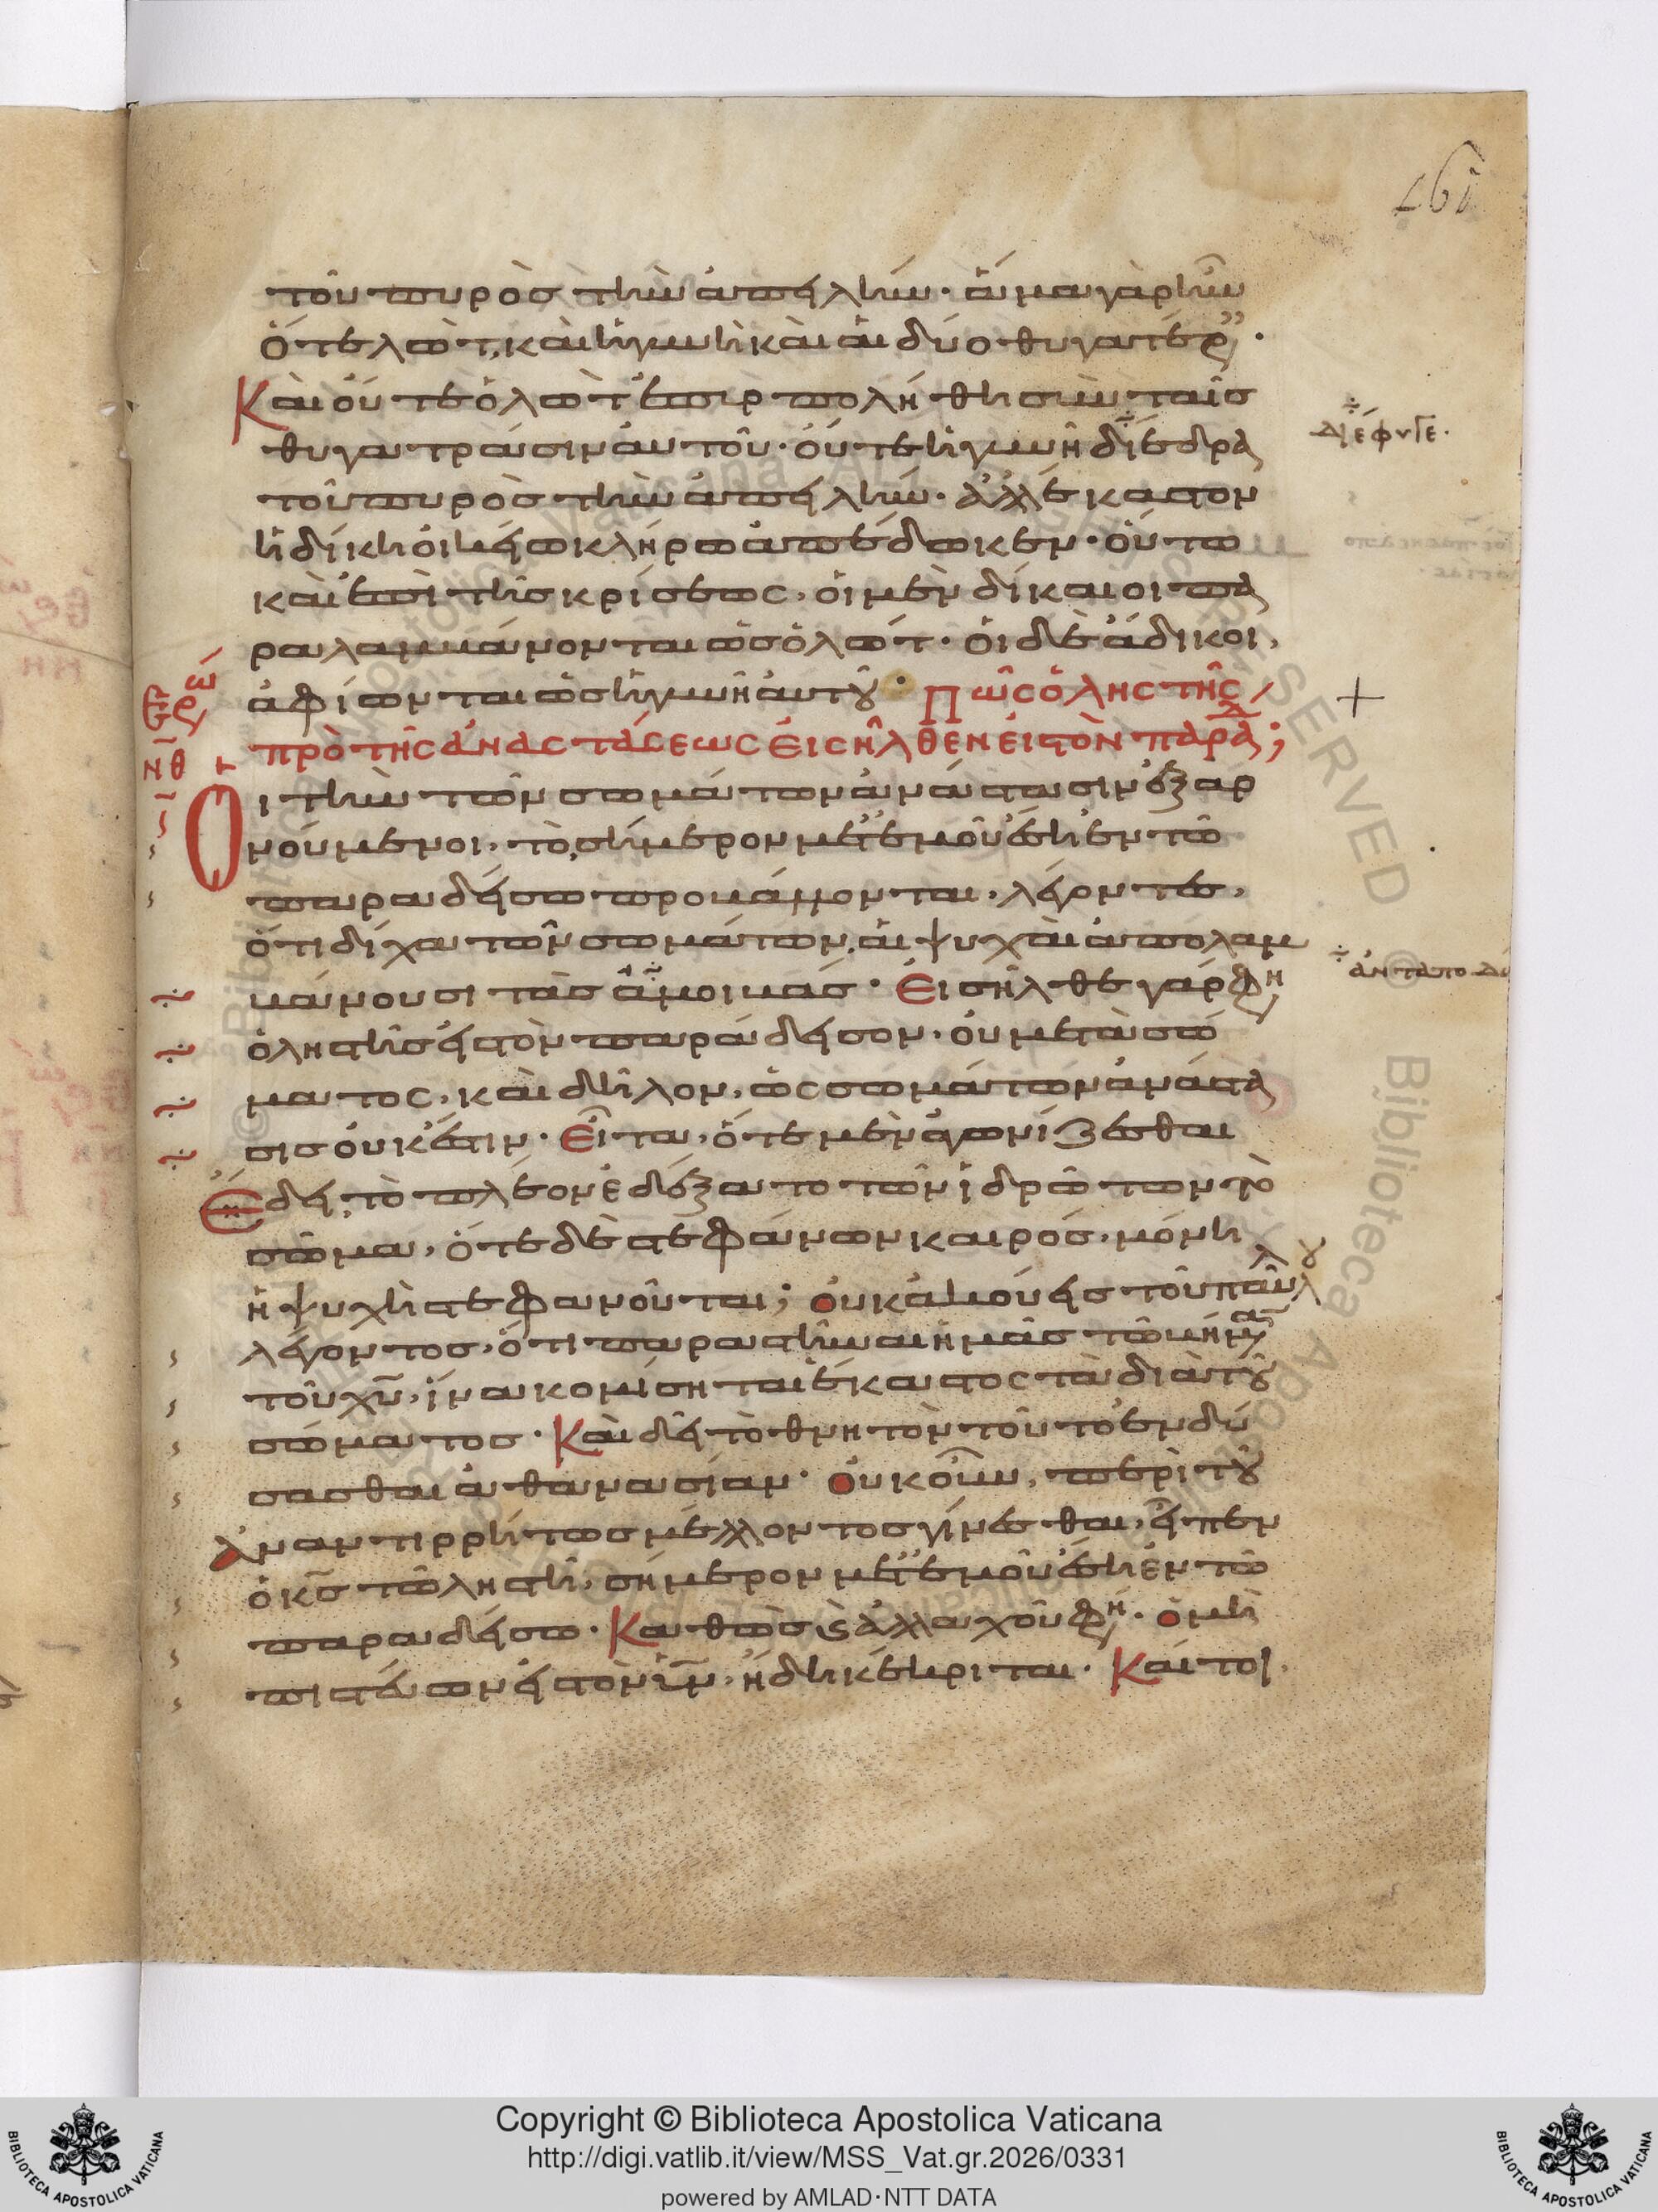 τοῦ πυρὸς τὴν ἀπειλήν· ἅμα γὰρ ἦν
ὅτε λὼτ, καὶ ἡ γυνὴ καὶ αἱ δύο θυγατέρ
Καὶ οὔτε ὁ λὼτ ἐπυρπολήθη σὺν ταῖς
θυγατράσιν αὐτοῦ· οὔτε ἡ γυνὴ διέδρα
τοῦ πυρὸς τὴν ἀπειλήν· ἀλλ' ἕκαστον
ἡ δίκη οἰκείω κλήρω ἀπέδωκεν· οὕτω
καὶ ἐπὶ τῆς κρίσεως, οἱ μὲν δίκαιοι πα
ραλαμβάνονται ὡς ὁ λώτ· οἱ δὲ ἄδικοι,
ἀφίονται ὡς ἡ γυνὴ αὐτοῦ· Πῶς ὁ λῃστὴς
πρὸ τῆς ἀναστάσεως εἰσῆλθεν εἰς τὸν παράδ;
Οἱ τὴν τῶν σωμάτων ἀνάστασιν ἐξαρ
νούμενοι, τὸ, σήμερον μετ' ἐμοῦ ἔση ἐν τῶ
παραδείσω προβάλλονται, λέγοντες,
ὅτι δίχα τῶν σωμάτων, αἱ ψυχαὶ ἀπολαμ
βάνουσι τὰς ἀμοιβάς· Εἰσῆλθε γάρ φη
ὁ ληστὴς εἰς τὸν παράδεισον, οὐ μετὰ σώ
ματος, καὶ δῆλον, ὡς σωμάτων ἀνάστα
σις οὐκ ἔστιν· Εἶτα, ὅτε μὲν ἀγωνίζεσθαι
ἔδει, τὸ πλέον ἐδέξατο τῶν ἱδρώτων τὸ
σῶμα, ὅτε δὲ στεφάνων καιρός, μόνη
ἡ ψυχὴ στεφανοῦται; οὐκ ἀκούεις τοῦ παύλου
λέγοντος, ὅτι παραστῆναι ἡμᾶς τῶ βήματι
τοῦ χυ, ἵνα κομίσηται ἕκαστος τὰ διὰ τοῦ
σώματος· Καὶ δεῖ τὸ θνητὸν τοῦτο ἐνδύ
σασθαι ἀθανασίαν· οὐκοῦν, περὶ τοῦ
ἀναντιρρήτως μέλλοντος γίνεσθαι, εἶπεν
ὁ κς τῶ ληστῆ, σήμερον μετ' ἐμοῦ ἔση ἐν τῶ
παραδείσω· Καθὼς καὶ ἀλλαχοῦ φη· ὁ μὴ
πιστεύων εἰς τὸν υν, ἤδη κέκριται· Καίτοι
διέφυγε·
ἀνταποδό
ἐρώ
νθ
Copyright © Biblioteca Apostolica Vaticana
http://digi.vatlib.it/view/MSS_Vat.gr.2026/0331
powered by AMLAD·NTT DATA
BIBLIOTECA APOSTOLICA VATICANA
BIBLIOTECA APOSTOLICA VATICANA